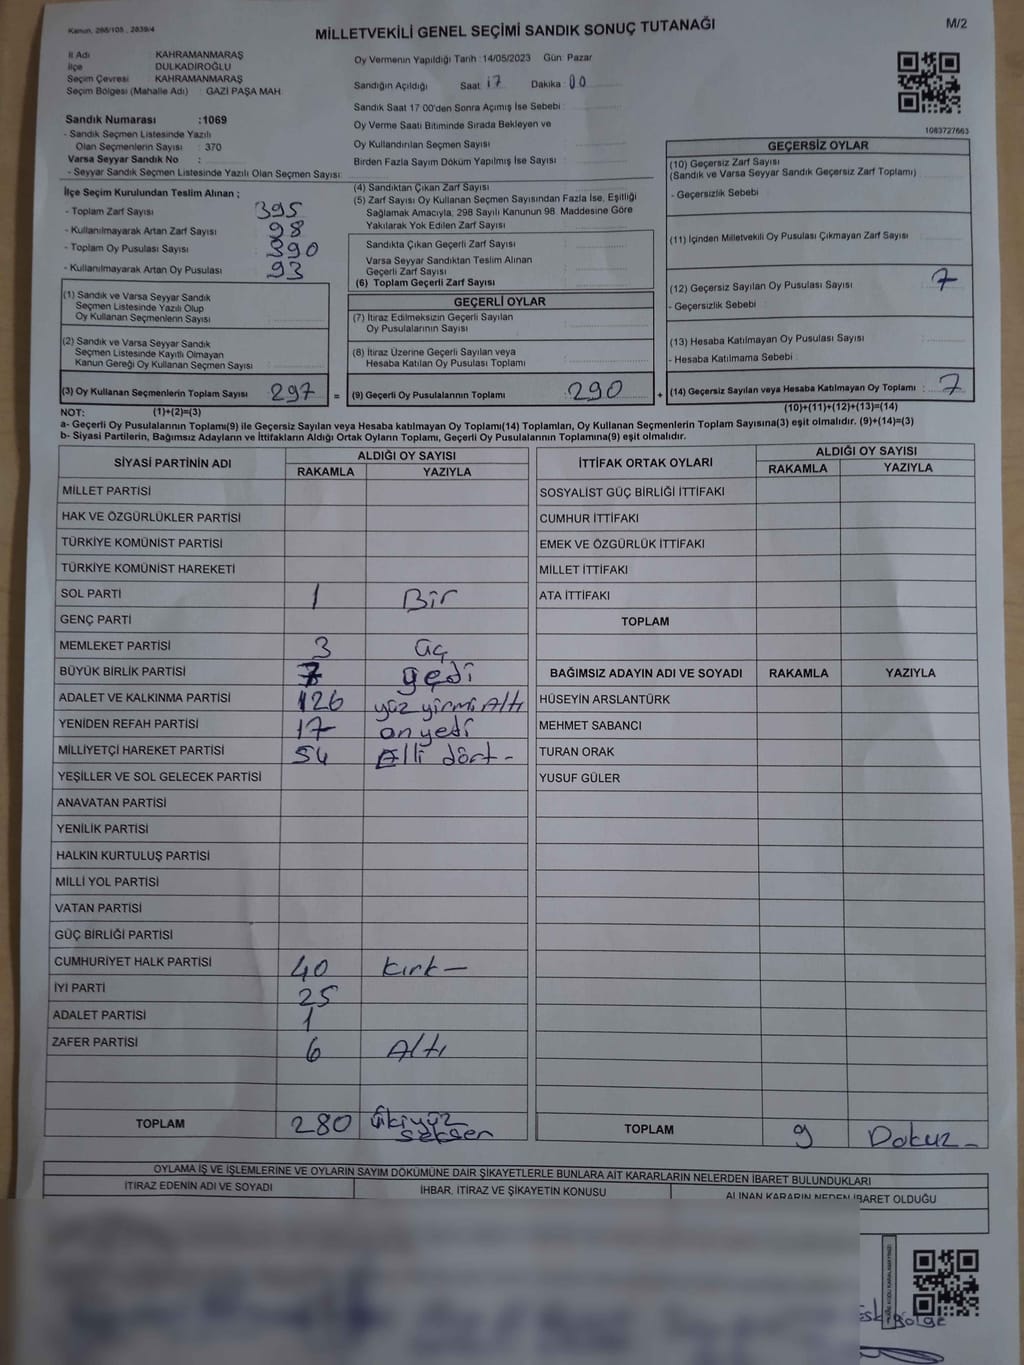 Kanun, 298/105 , 2839/4
MİLLETVEKİLİ GENEL SEÇİMİ SANDIK SONUÇ TUTANAĞI
M/2
İl Adı KAHRAMANMARAŞ
İlçe DULKADİROĞLU
Seçim Çevresi KAHRAMANMARAŞ
Seçim Bölgesi (Mahalle Adı) : GAZİ PAŞA MAH
Oy Vermenin Yapıldığı Tarih : 14/05/2023 Gün: Pazar
Sandığın Açıldığı Saat : 17 Dakika : 00
Sandık Saat 17 00'den Sonra Açımış İse Sebebi :
Oy Verme Saati Bitiminde Sırada Bekleyen ve
Oy Kullandırılan Seçmen Sayısı :
Birden Fazla Sayım Döküm Yapılmış İse Sayısı :
Sandık Numarası :1069
- Sandık Seçmen Listesinde Yazılı
Olan Seçmenlerin Sayısı : 370
Varsa Seyyar Sandık No :
- Seyyar Sandık Seçmen Listesinde Yazılı Olan Seçmen Sayısı:
1083727663
İlçe Seçim Kurulundan Teslim Alınan ;
- Toplam Zarf Sayısı 395
- Kullanılmayarak Artan Zarf Sayısı 98
- Toplam Oy Pusulası Sayısı 390
- Kullanılmayarak Artan Oy Pusulası 93
(1) Sandık ve Varsa Seyyar Sandık
Seçmen Listesinde Yazılı Olup
Oy Kullanan Seçmenlerin Sayısı :
(2) Sandık ve Varsa Seyyar Sandık
Seçmen Listesinde Kayıtlı Olmayan
Kanun Gereği Oy Kullanan Seçmen Sayısı :
(3) Oy Kullanan Seçmenlerin Toplam Sayısı : 297 =
(4) Sandıktan Çıkan Zarf Sayısı :
(5) Zarf Sayısı Oy Kullanan Seçmen Sayısından Fazla İse, Eşitliği
Sağlamak Amacıyla, 298 Sayılı Kanunun 98. Maddesine Göre
Yakılarak Yok Edilen Zarf Sayısı :
Sandıkta Çıkan Geçerli Zarf Sayısı :
Varsa Seyyar Sandıktan Teslim Alınan
Geçerli Zarf Sayısı :
(6) Toplam Geçerli Zarf Sayısı :
GEÇERLİ OYLAR
(7) İtiraz Edilmeksizin Geçerli Sayılan
Oy Pusulalarının Sayısı :
(8) İtiraz Üzerine Geçerli Sayılan veya
Hesaba Katılan Oy Pusulası Toplamı :
(9) Geçerli Oy Pusulalarının Toplamı : 290 +
GEÇERSİZ OYLAR
(10) Geçersiz Zarf Sayısı
(Sandık ve Varsa Seyyar Sandık Geçersiz Zarf Toplamı) :
- Geçersizlik Sebebi :
(11) İçinden Milletvekili Oy Pusulası Çıkmayan Zarf Sayısı :
(12) Geçersiz Sayılan Oy Pusulası Sayısı : 7
- Geçersizlik Sebebi :
(13) Hesaba Katılmayan Oy Pusulası Sayısı :
- Hesaba Katılmama Sebebi :
(14) Geçersiz Sayılan veya Hesaba Katılmayan Oy Toplamı : 7
NOT: (1)+(2)=(3) (10)+(11)+(12)+(13)=(14)
a- Geçerli Oy Pusulalarının Toplamı(9) ile Geçersiz Sayılan veya Hesaba Katılmayan oy Toplamı(14) Toplamları, Oy Kullanan Seçmenlerin Toplam Sayısına(3) eşit olmalıdır. (9)+(14)=(3)
b- Siyasi Partilerin, Bağımsız Adayların ve İttifakların Aldığı Ortak Oyların Toplamı, Geçerli Oy Pusulalarının Toplamına(9) eşit olmalıdır.
SİYASİ PARTİNİN ADI ALDIĞI OY SAYISI
RAKAMLA YAZIYLA
MİLLET PARTİSİ
HAK VE ÖZGÜRLÜKLER PARTİSİ
TÜRKİYE KOMÜNİST PARTİSİ
TÜRKİYE KOMÜNİST HAREKETİ
SOL PARTİ 1 Bir
GENÇ PARTİ
MEMLEKET PARTİSİ 3 üç
BÜYÜK BİRLİK PARTİSİ 7 yedi
ADALET VE KALKINMA PARTİSİ 126 yüz yirmi Altı
YENİDEN REFAH PARTİSİ 17 on yedi
MİLLİYETÇİ HAREKET PARTİSİ 54 Elli dört -
YEŞİLLER VE SOL GELECEK PARTİSİ
ANAVATAN PARTİSİ
YENİLİK PARTİSİ
HALKIN KURTULUŞ PARTİSİ
MİLLİ YOL PARTİSİ
VATAN PARTİSİ
GÜÇ BİRLİĞİ PARTİSİ
CUMHURİYET HALK PARTİSİ 40 kırk —
İYİ PARTİ 25
ADALET PARTİSİ 1
ZAFER PARTİSİ 6 Altı
TOPLAM 280 ikiyüz
seksen
İTTİFAK ORTAK OYLARI ALDIĞI OY SAYISI
RAKAMLA YAZIYLA
SOSYALİST GÜÇ BİRLİĞİ İTTİFAKI
CUMHUR İTTİFAKI
EMEK VE ÖZGÜRLÜK İTTİFAKI
MİLLET İTTİFAKI
ATA İTTİFAKI
TOPLAM
BAĞIMSIZ ADAYIN ADI VE SOYADI RAKAMLA YAZIYLA
HÜSEYİN ARSLANTÜRK
MEHMET SABANCI
TURAN ORAK
YUSUF GÜLER
TOPLAM 9 Dokuz -
OYLAMA İŞ VE İŞLEMLERİNE VE OYLARIN SAYIM DÖKÜMÜNE DAİR ŞİKAYETLERLE BUNLARA AİT KARARLARIN NELERDEN İBARET BULUNDUKLARI
İTİRAZ EDENİN ADI VE SOYADI İHBAR, İTİRAZ VE ŞİKAYETİN KONUSU ALINAN KARARIN NEDEN İBARET OLDUĞU